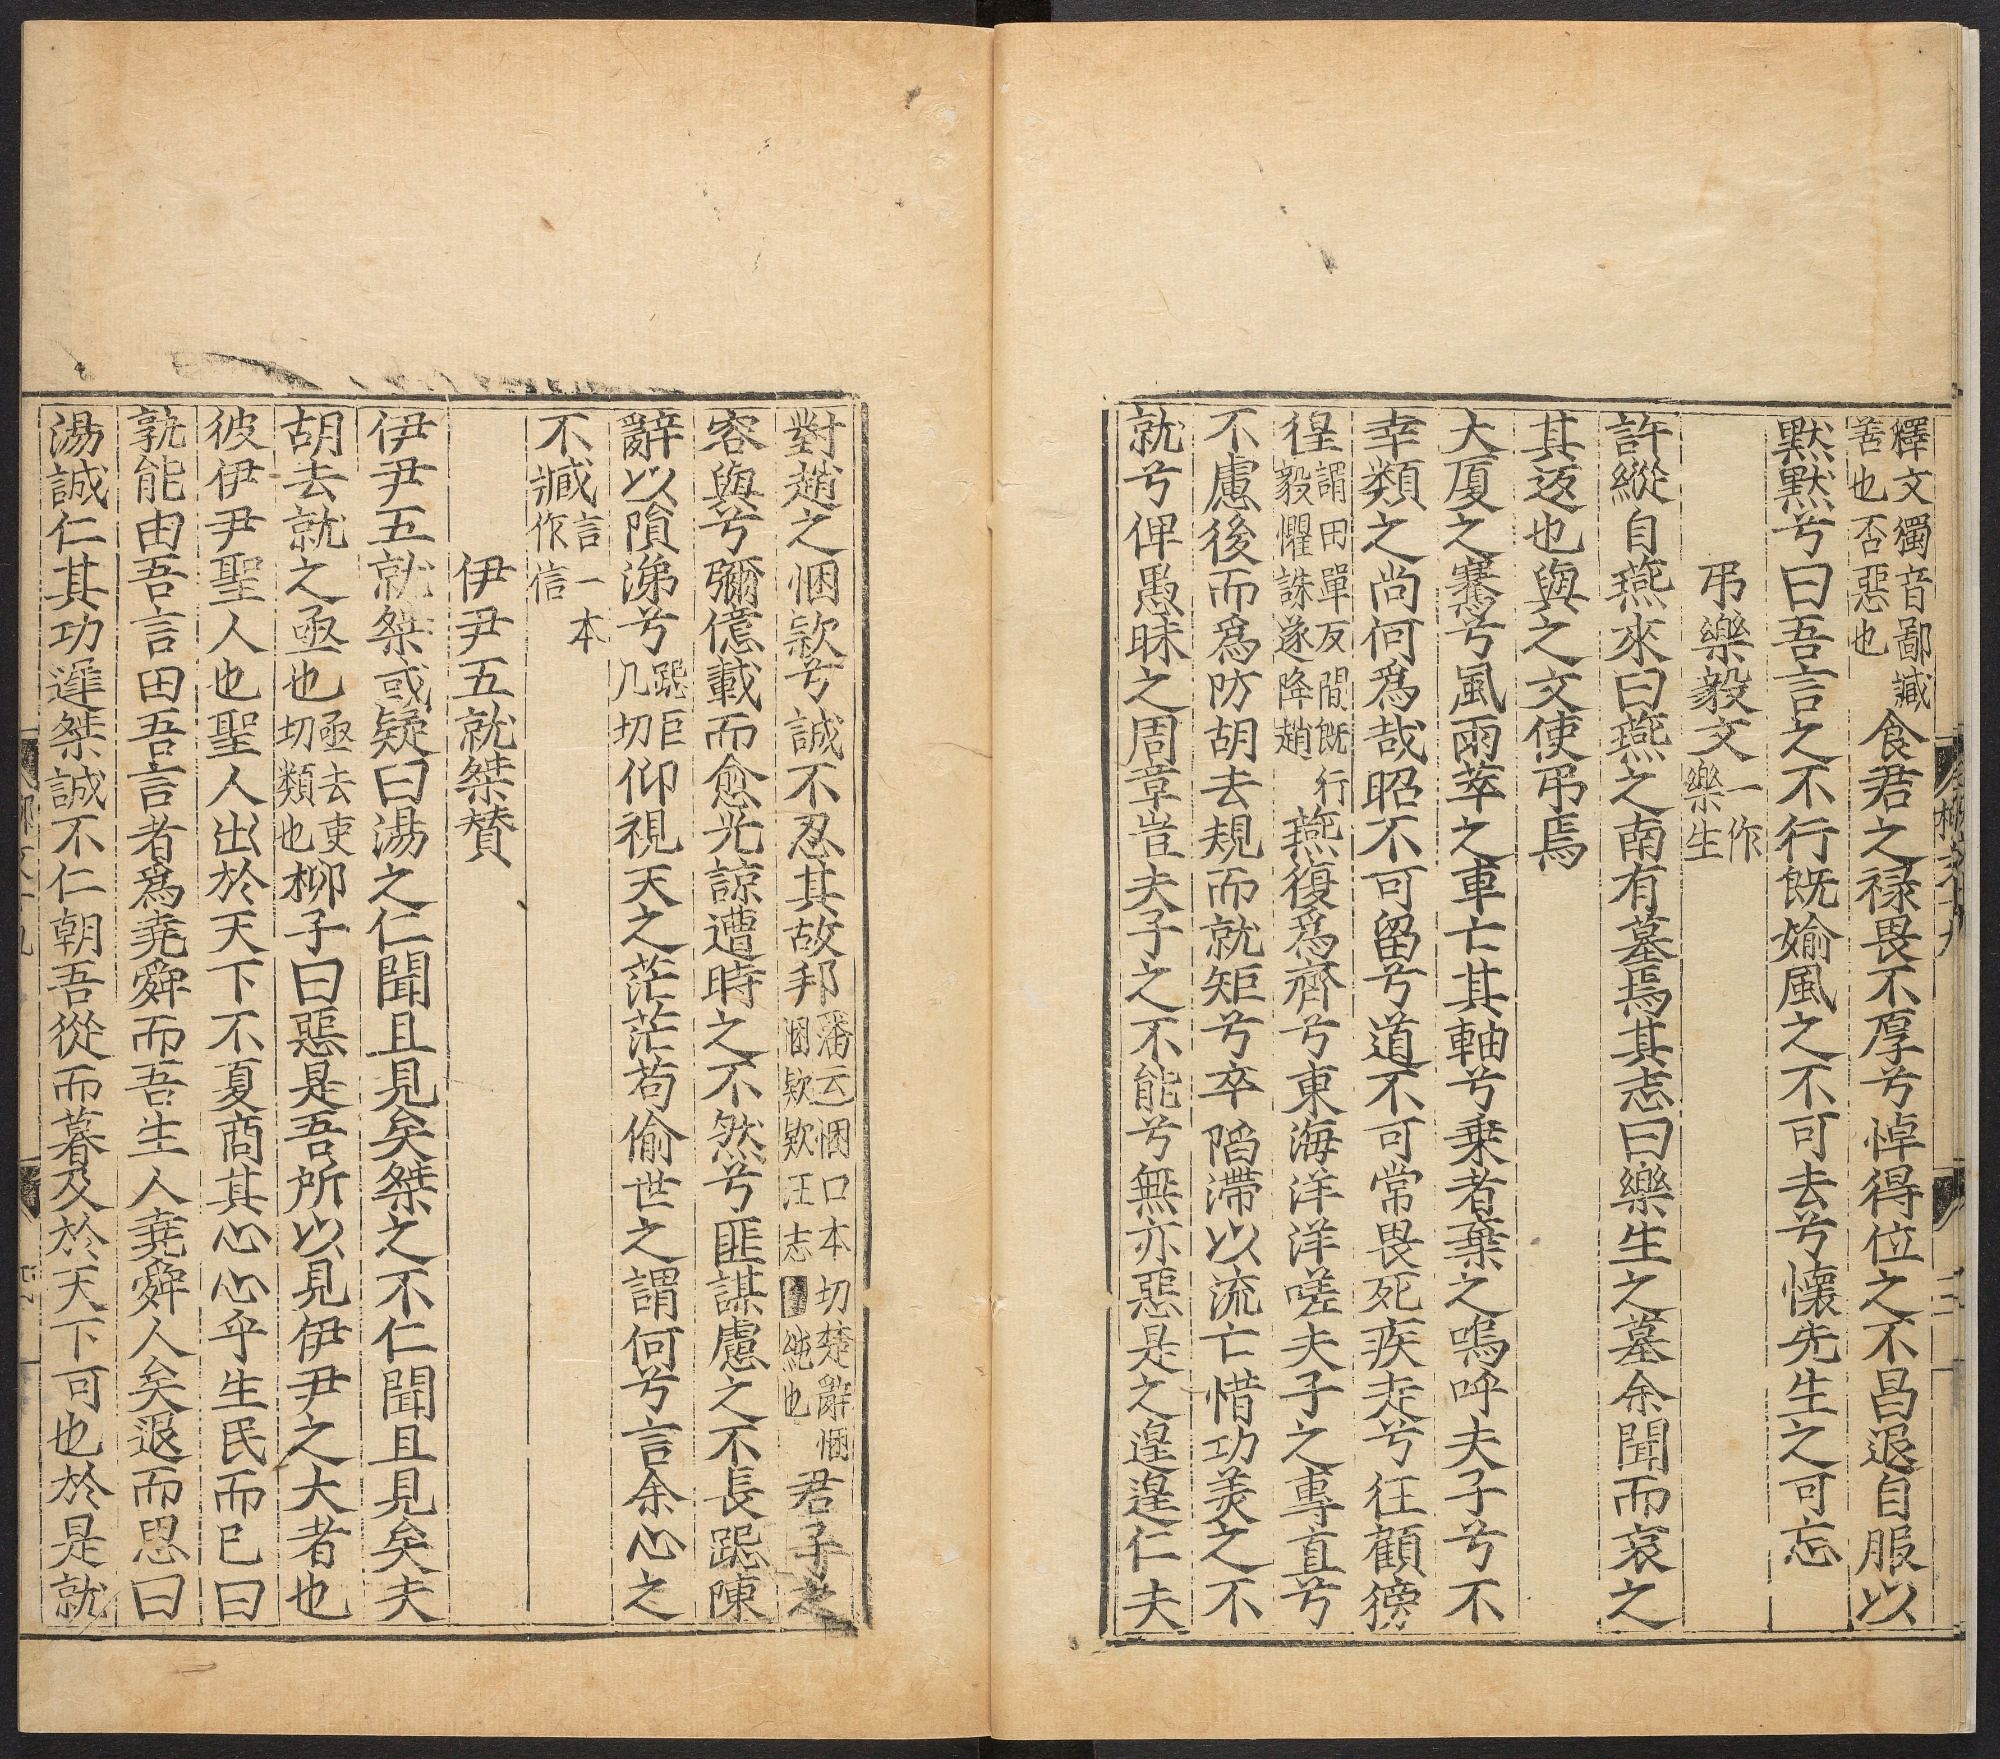 釋文獨音鄙臧善也否惡也食君之禄畏不厚兮悼得位之不昌退自服以
黙黙兮曰吾言之不行既媮風之不可去兮懷先生之可忘
弔樂毅文一作樂生
許縱自燕來曰燕之南有墓焉其志曰樂生之墓余聞而哀之
其返也與之文使弔焉
大厦之騫兮風雨萃之車亡其軸兮乗者棄之嗚呼夫子兮不
幸類之尚何爲哉昭不可留兮道不可常畏死疾走兮狂顧徬
徨謂田單反間既行毅懼誅遂降趙燕復爲齊兮兮東海洋洋嗟夫子之專直兮
不慮後而爲防胡去規而就矩兮卒陷滯以流亡惜功美之不
就兮俾愚昧之周章豈夫子之不能兮無亦惡是之遑遑仁夫
對趙之悃款兮誠不忍其故邦潘云悃口本切楚辭悃悃欵欵汪志純也君子之
容與兮彌億載而愈光諒遭時之不然兮匪謀慮之不長跽陳
辭以隕涕兮跽巨几切仰視天之茫茫苟偷世之謂何兮言余心之
不臧言一本作信
伊尹五就桀賛
伊尹五就桀或疑曰湯之仁聞且見矣桀之不仁聞且見矣夫
胡去就之亟也亟去吏切類也柳子曰惡是吾所以見伊尹之大者也
彼伊尹聖人也聖人出於天下不夏商其心心乎生民而已曰
孰能由吾言由吾言者爲堯舜而吾生人堯舜人矣退而思曰
湯誠仁其功遲桀誠不仁朝吾從而暮及於天下可也於是就